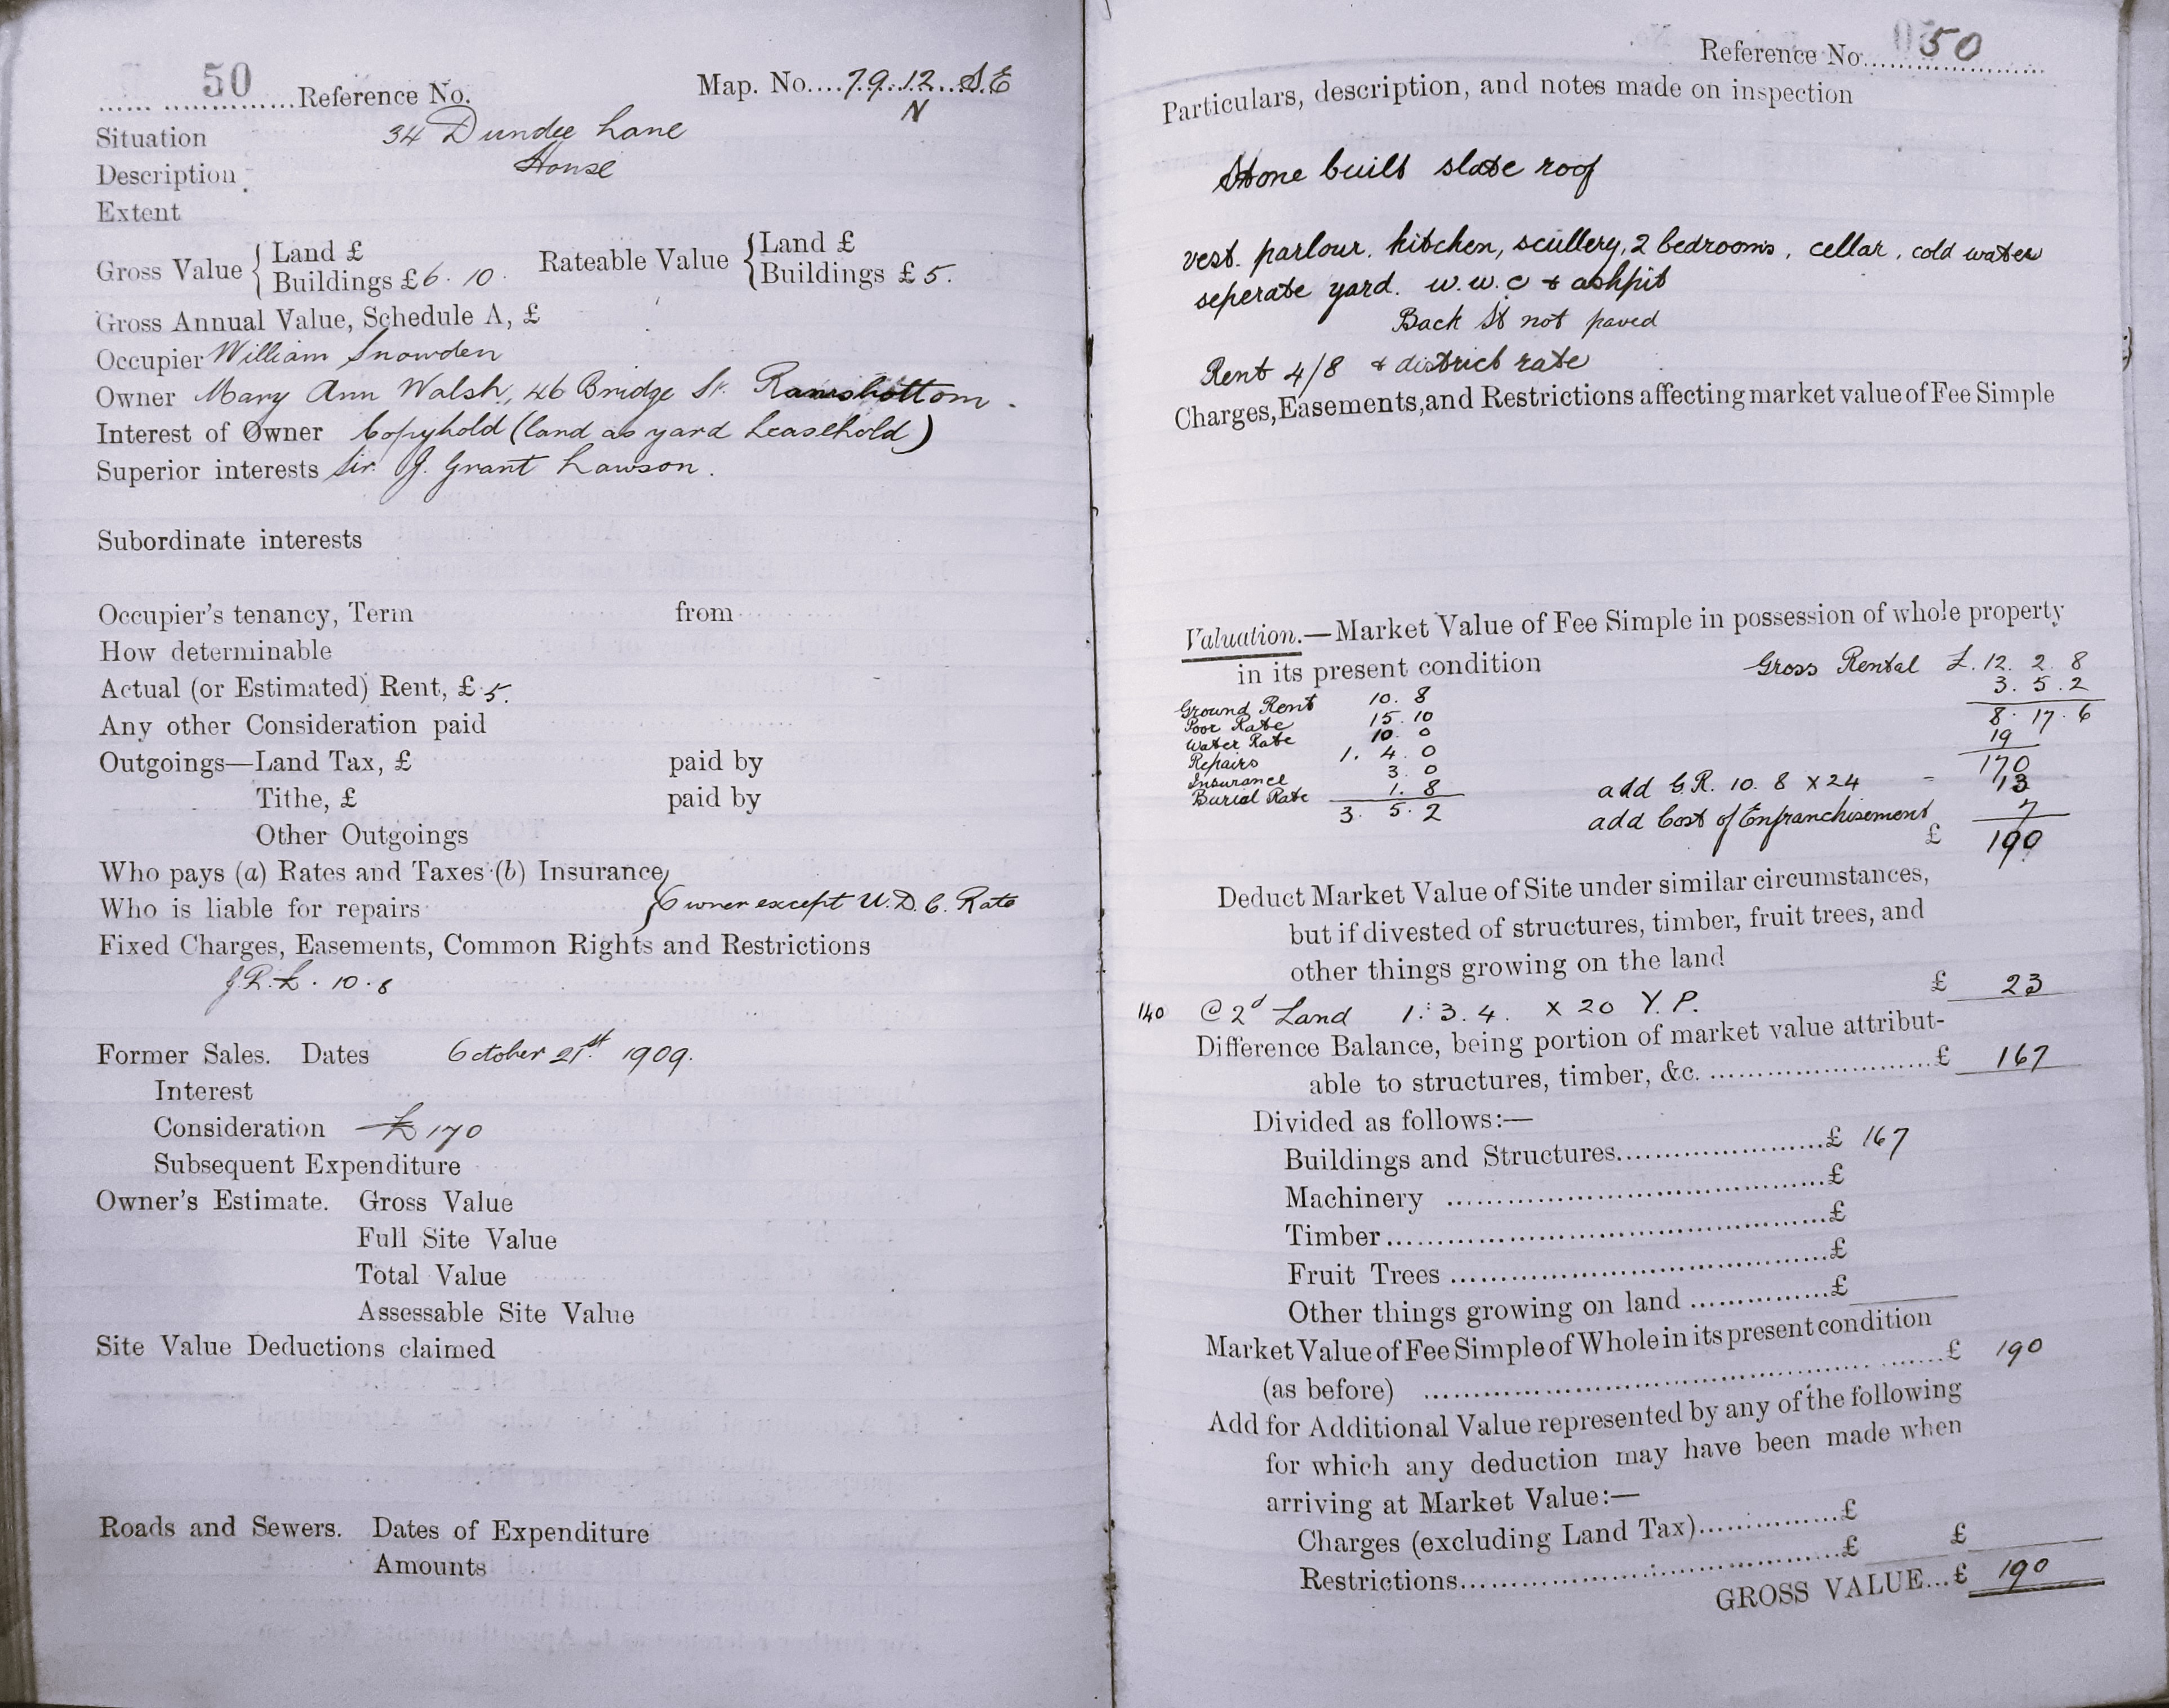 50 Reference No. Map. No....79.12...S.E
N
Situation 34 Dundee Lane
Description House
Extent
Gross Value { Land £ Rateable Value { Land £
Buildings £ 6. 10. Buildings £ 5.
Gross Annual Value, Schedule A, £
Occupier William Snowden
Owner Mary Ann Walsh, 46 Bridge St. Ramsbottom.
Interest of Owner Copyhold (land as yard Leasehold)
Superior interests Sir J. Grant Lawson.
Subordinate interests
Occupier's tenancy, Term from
How determinable
Actual (or Estimated) Rent, £ 5.
Any other Consideration paid
Outgoings—Land Tax, £ paid by
Tithe, £ paid by
Other Outgoings
Who pays (a) Rates and Taxes (b) Insurance
Who is liable for repairs } Owner except U.D.C. Rate
Fixed Charges, Easements, Common Rights and Restrictions
G.R. £. 10. 8
Former Sales. Dates October 21st. 1909.
Interest
Consideration £ 170
Subsequent Expenditure
Owner's Estimate. Gross Value
Full Site Value
Total Value
Assessable Site Value
Site Value Deductions claimed
Roads and Sewers. Dates of Expenditure
Amounts
Reference No. 50
Particulars, description, and notes made on inspection
Stone built slate roof
vest. parlour. kitchen, scullery, 2 bedrooms, cellar, cold water
seperate yard. w.w.c & ashpit
Back St not paved
Rent 4/8 & district rate
Charges, Easements, and Restrictions affecting market value of Fee Simple
Valuation.—Market Value of Fee Simple in possession of whole property
in its present condition Gross Rental £. 12. 2. 8
Ground Rent 10. 8 3. 5. 2
Poor Rate 15. 10 8. 17. 6
Water Rate 10. 0 19
Repairs 1. 4. 0 170
Insurance 3. 0 add G.R. 10. 8 x 24 = 13
Burial Rate 1. 8 add Cost of Enfranchisement 7
3. 5. 2 £ 190
Deduct Market Value of Site under similar circumstances,
but if divested of structures, timber, fruit trees, and
other things growing on the land £ 23
140 @ 2d Land 1. 3. 4. x 20 Y.P.
Difference Balance, being portion of market value attribut-
able to structures, timber, &c. ........ £ 167
Divided as follows:—
Buildings and Structures........ £ 167
Machinery ........ £
Timber ........ £
Fruit Trees ........ £
Other things growing on land ........ £
Market Value of Fee Simple of Whole in its present condition
(as before) ........ £ 190
Add for Additional Value represented by any of the following
for which any deduction may have been made when
arriving at Market Value:—
Charges (excluding Land Tax)........ £
Restrictions........ £ £
GROSS VALUE...£ 190